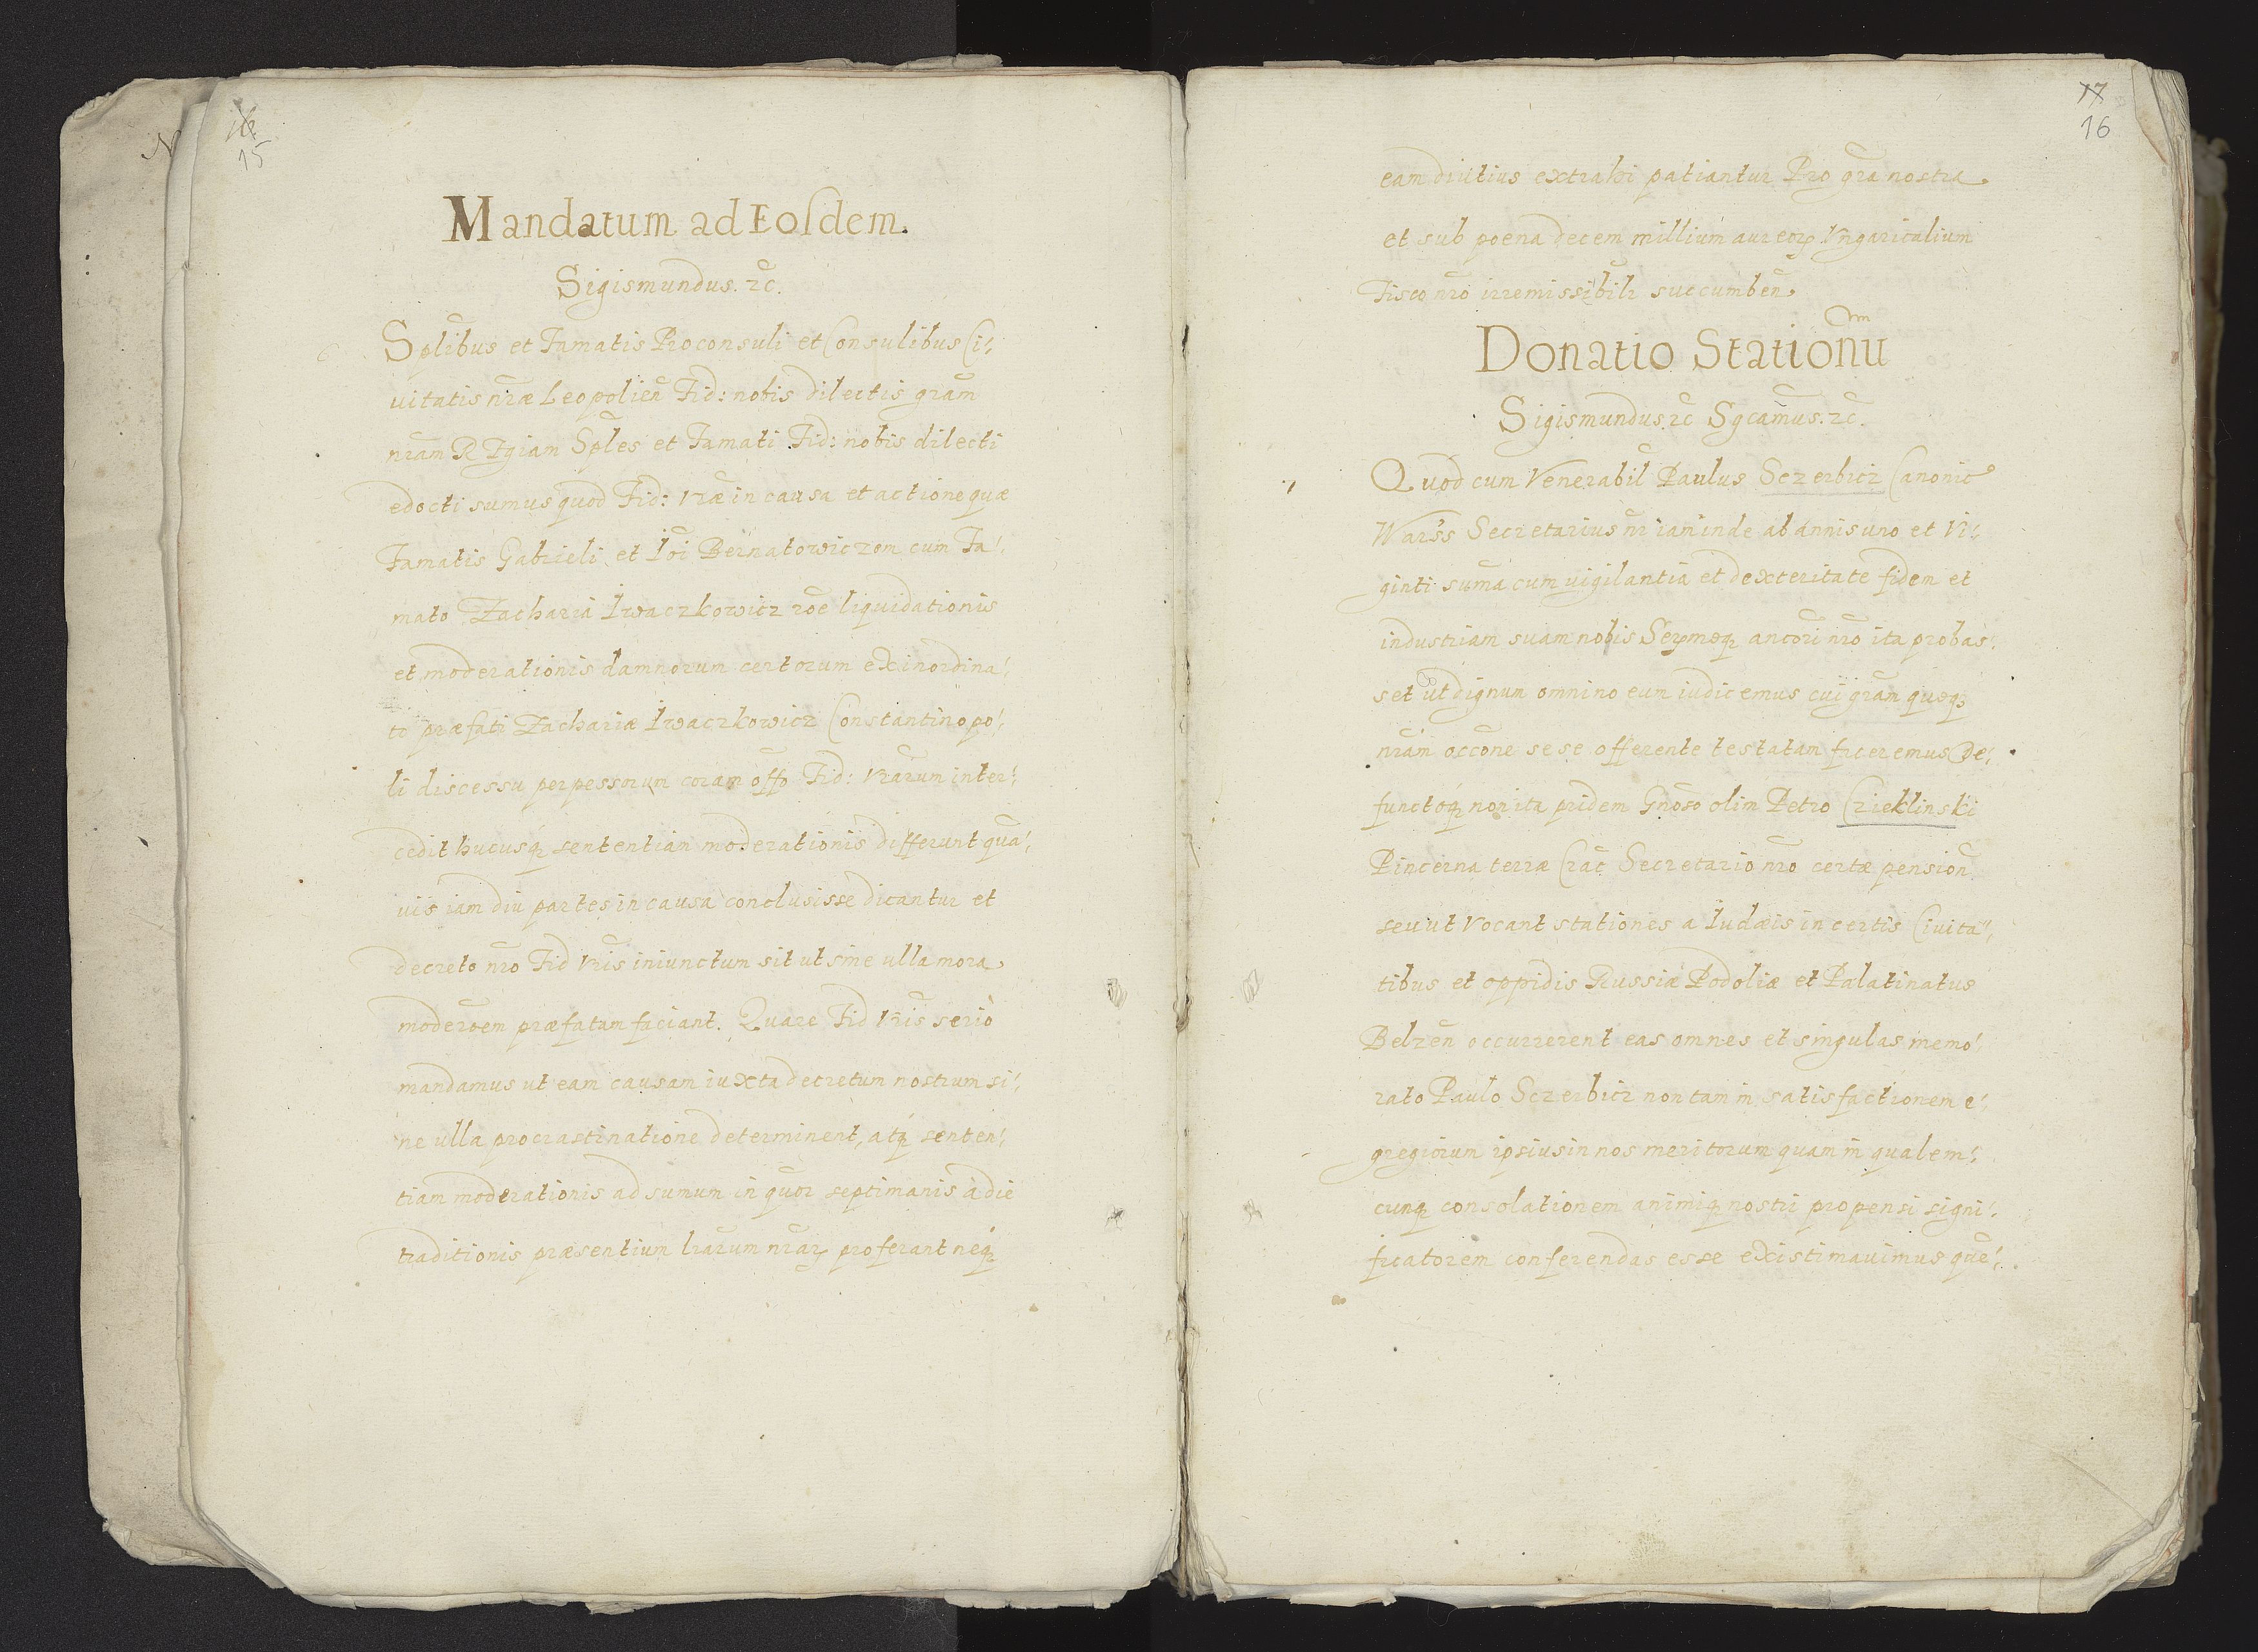 16
15
Mandatum ad Eosdem.
Sigismundus. &c.
Splibus et Famatis Proconsuli et Consulibus Ci-
uitatis nræ Leopolien Fid: nobis dilectis gram
nram R Egiam Sples et Famati Fid: nobis dilecti
edocti sumus quod Fid: Vræ in causa et actione quæ
Famatis Gabrieli et Ioi Bernatowiczom cum Fa-
mato Zacharia Iwaczkowicz roe liquidationis
et moderationis damnorum certorum ex inordina-
to præfati Zachariæ Iwaczkowicz Constantinopo-
li discessu perpessorum coram offo Fid: Vrarum inter-
cedit hucusq sententiam moderationis differunt qua-
uis iam diu partes in causa conclusisse dicantur et
decreto nro Fid Vris iniunctum sit ut sine ulla mora
moderoem præfatam faciant. Quare Fid Vris serio
mandamus ut eam causam iuxta decretum nostrum si-
ne ulla procrastinatione determinent, atq senten-
tiam moderationis ad sumum in quor septimanis a die
traditionis præsentium lrarum nrar proferant neq
17
16
eam diutius extrahi patiantur Pro gra nostra
et sub poena decem millium aureor Vngaricalium
Fisco nro irremissibilr succumben
Donatio Stationu
Sigismundus &c Sgcamus. &c.
Quod cum Venerabil Paulus Sczerbicz Canonic
Warss Secretarius nr iam inde ab annis uno et Vi-
ginti suma cum uigilantia et dexteritate fidem et
industriam suam nobis Sermoq ancori nro ita probas-
set ut dignum omnino eum iudicemus cui gram quoq
nram occone sese offerente testatam faceremus De-
functoq non ita pridem Gnoso olim Petro Czieklinski
Pincerna terræ Crac Secretario nro certæ pension
seu ut Vocant stationes a Iudæis in certis Ciuita-
tibus et oppidis Russiæ Podoliæ et Palatinatus
Belzen occurrerent eas omnes et singulas memo-
rato Paulo Sczerbicz non tam in satisfactionem e-
gregiorum ipsius in nos meritorum quam in qualem-
cunq consolationem animiq nostri propensi signi-
ficatorem conferendas esse existimauimus que-